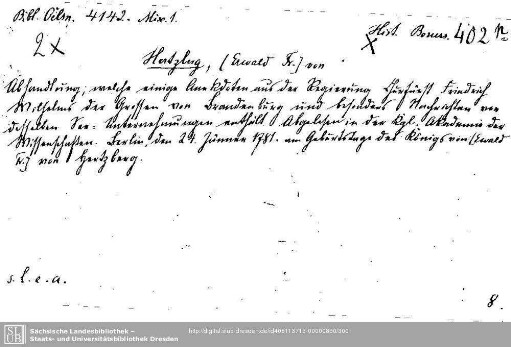 Bibl. Oelsn. 4142. Misc. 1.
Hist. Boruss. 402 n
2x
Hertzberg, (Ewald Fr.) von
Abhandlung, welche einige Anekdoten aus der Regierung Churfürst Friedrich
Wilhelms des Grossen von Brandenburg und besonders Nachrichten von
desselben See-Unternehmungen enthält. Abgelesen in der Kgl. Akademie der
Wissenschaften. Berlin, den 24. Jänner 1781. am Geburtstage des Königs von (Ewald
Fr.) von Hertzberg.
s. l. e. a.
8.
SLUB
Sächsische Landesbibliothek –
Staats- und Universitätsbibliothek Dresden